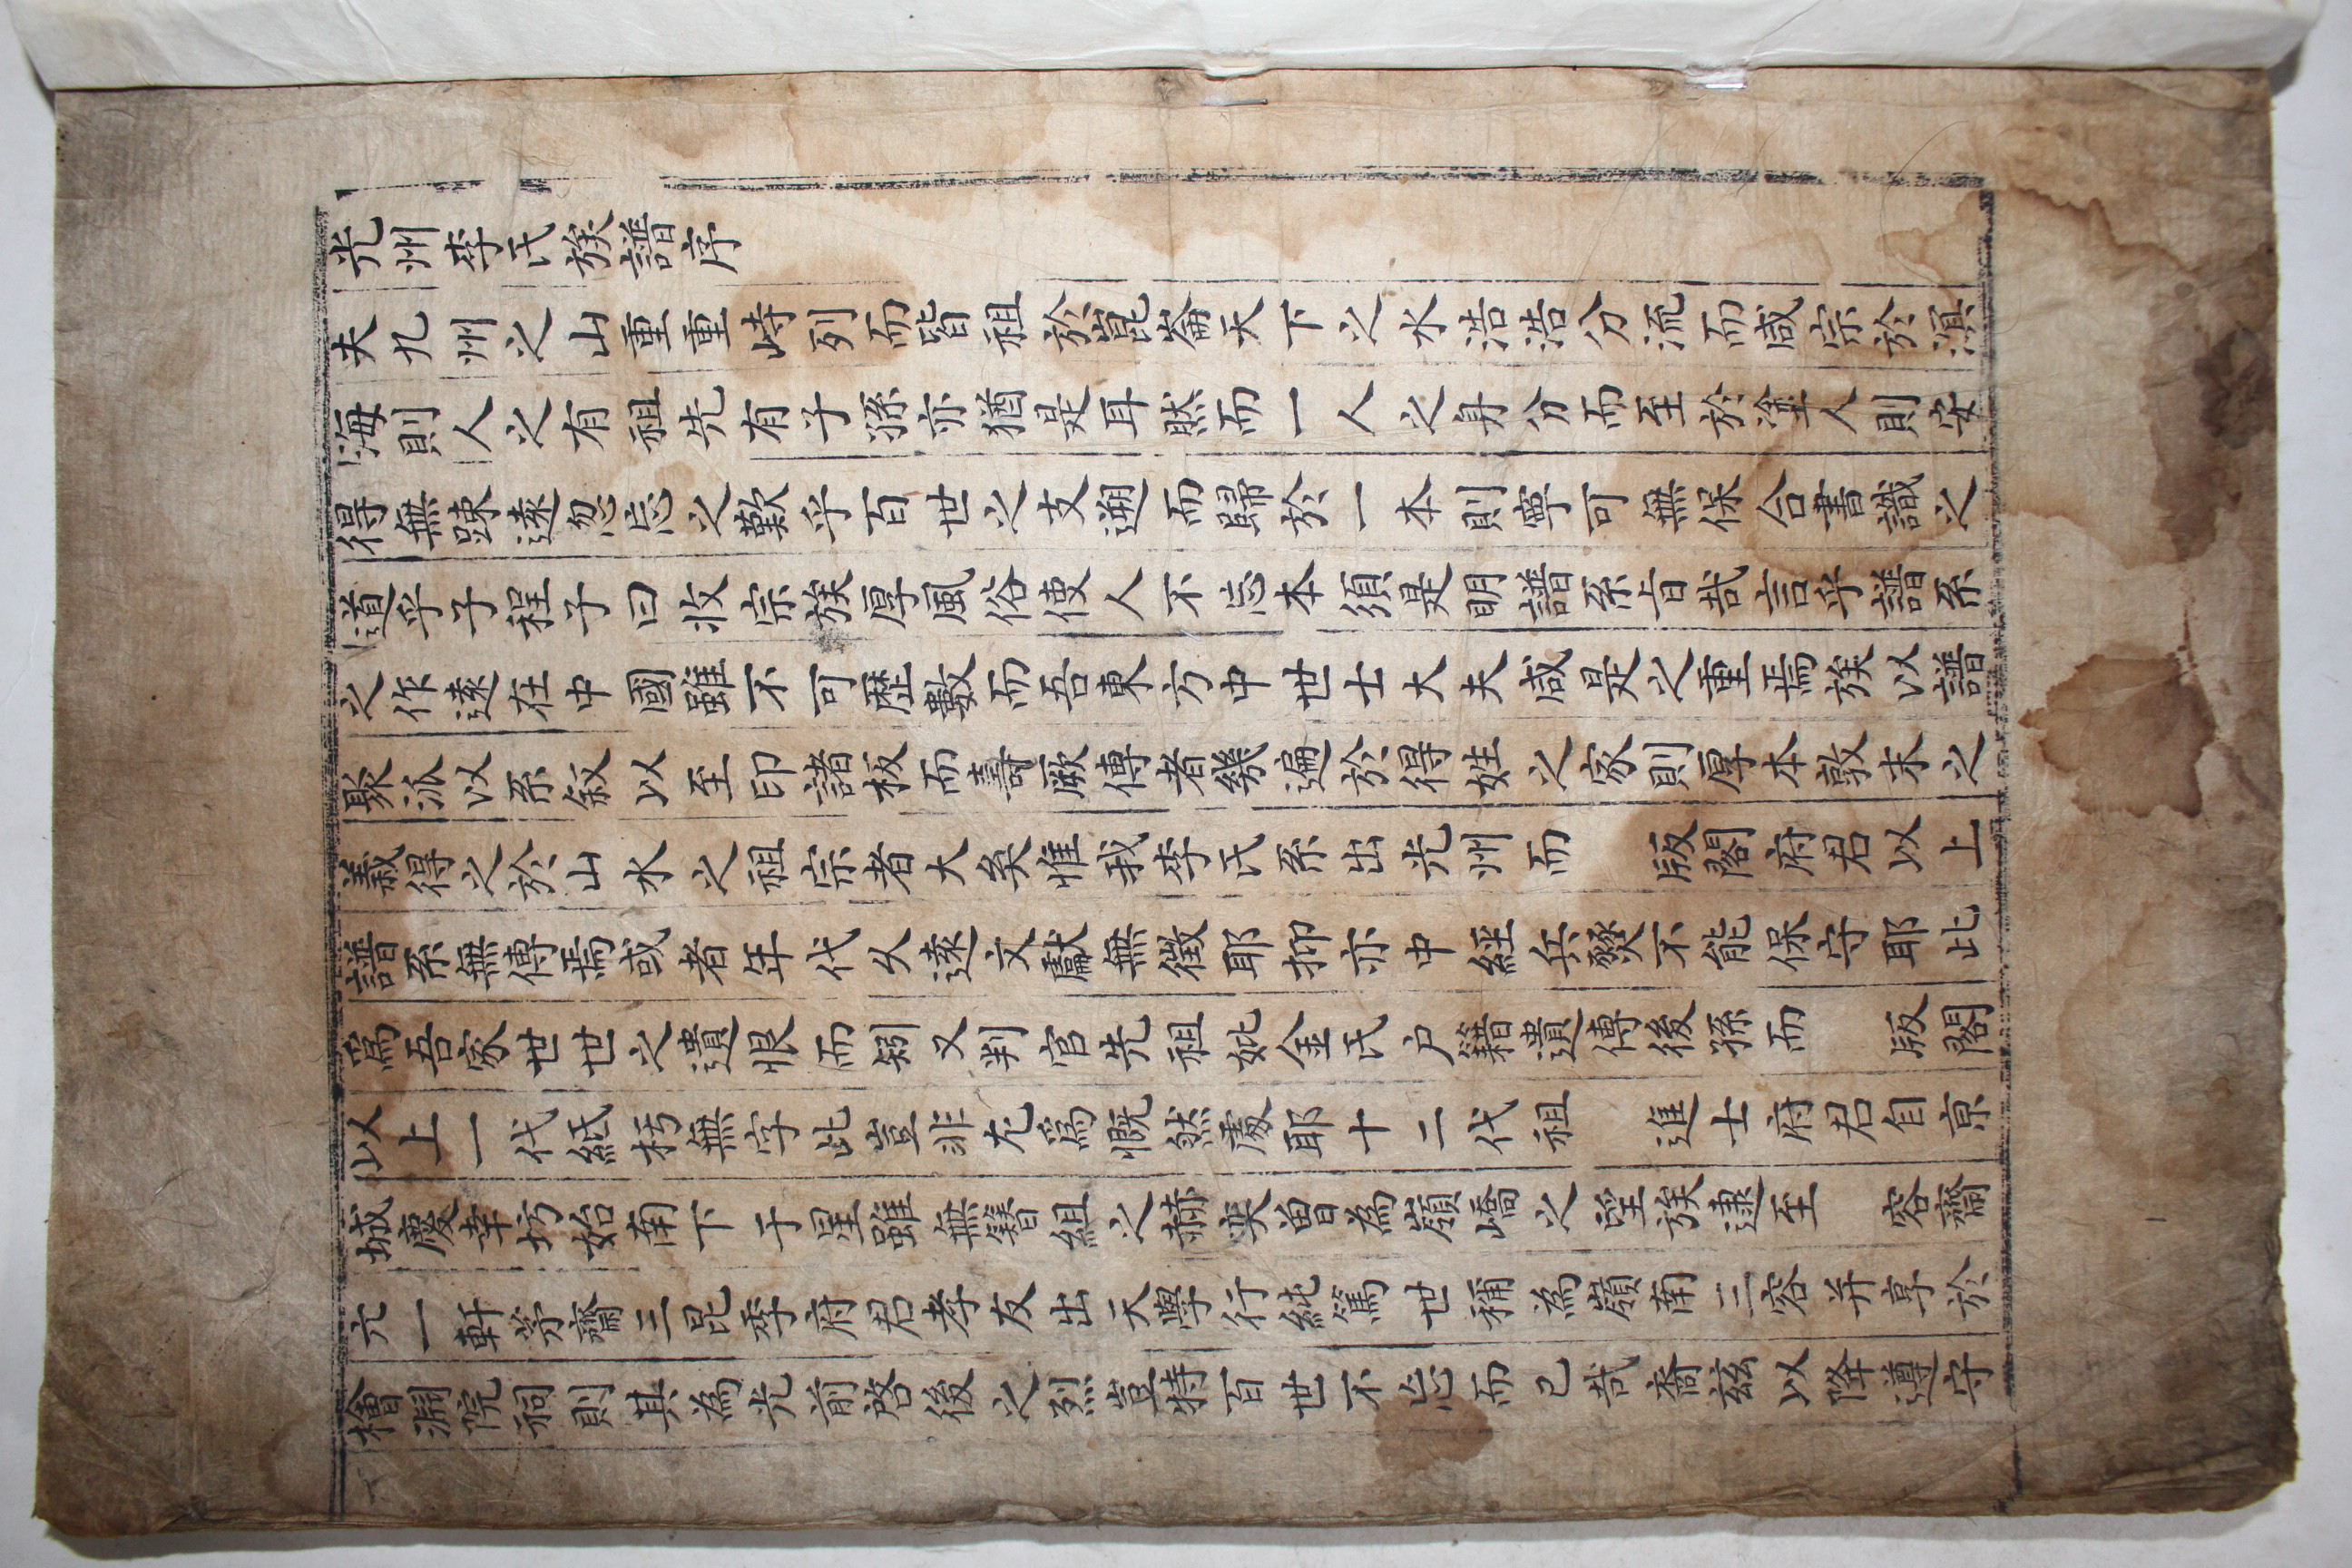 光州李氏族譜序
夫九州之山重重峙列而皆祖於崑崙天下之水浩浩分流而咸宗於溟
海則人之有祖先有子孫亦猶是耳然而一人之身分而至於塗人則安
得無踈遠忽忘之歎乎百世之支遡而歸於一本則寧可無保合書識之
道乎子程子曰收宗族厚風俗使人不忘本須是明譜系旨哉言乎譜系
之作遠在中國雖不可歷數而吾東方中世士大夫咸是之重焉族以譜
聚派以系叙以至印諸板而壽厥傳者幾遍於得姓之家則厚本敦末之
義得之於山水之祖宗者大矣惟我李氏系出光州而 版閣府君以上
譜系無傳焉或者年代久遠文獻無徵耶抑亦中經兵燹不能保守耶此
爲吾家世世之遺恨而矧又判官先祖妣金氏戶籍遺傳後孫而 版閣
以上一代紙朽無字此豈非尤爲慨然處耶十二代祖 進士府君自京
城慶幸坊始南下于星雖無簪組之赫奕曾為嶺嶠之望族逮至 容齋
六一軒芳齋三昆季府君孝友出天學行純篤世稱為嶺南三容并享於
檜淵院祠則其為光前啓後之烈豈特百世不忘而已哉裔玆以降遵守